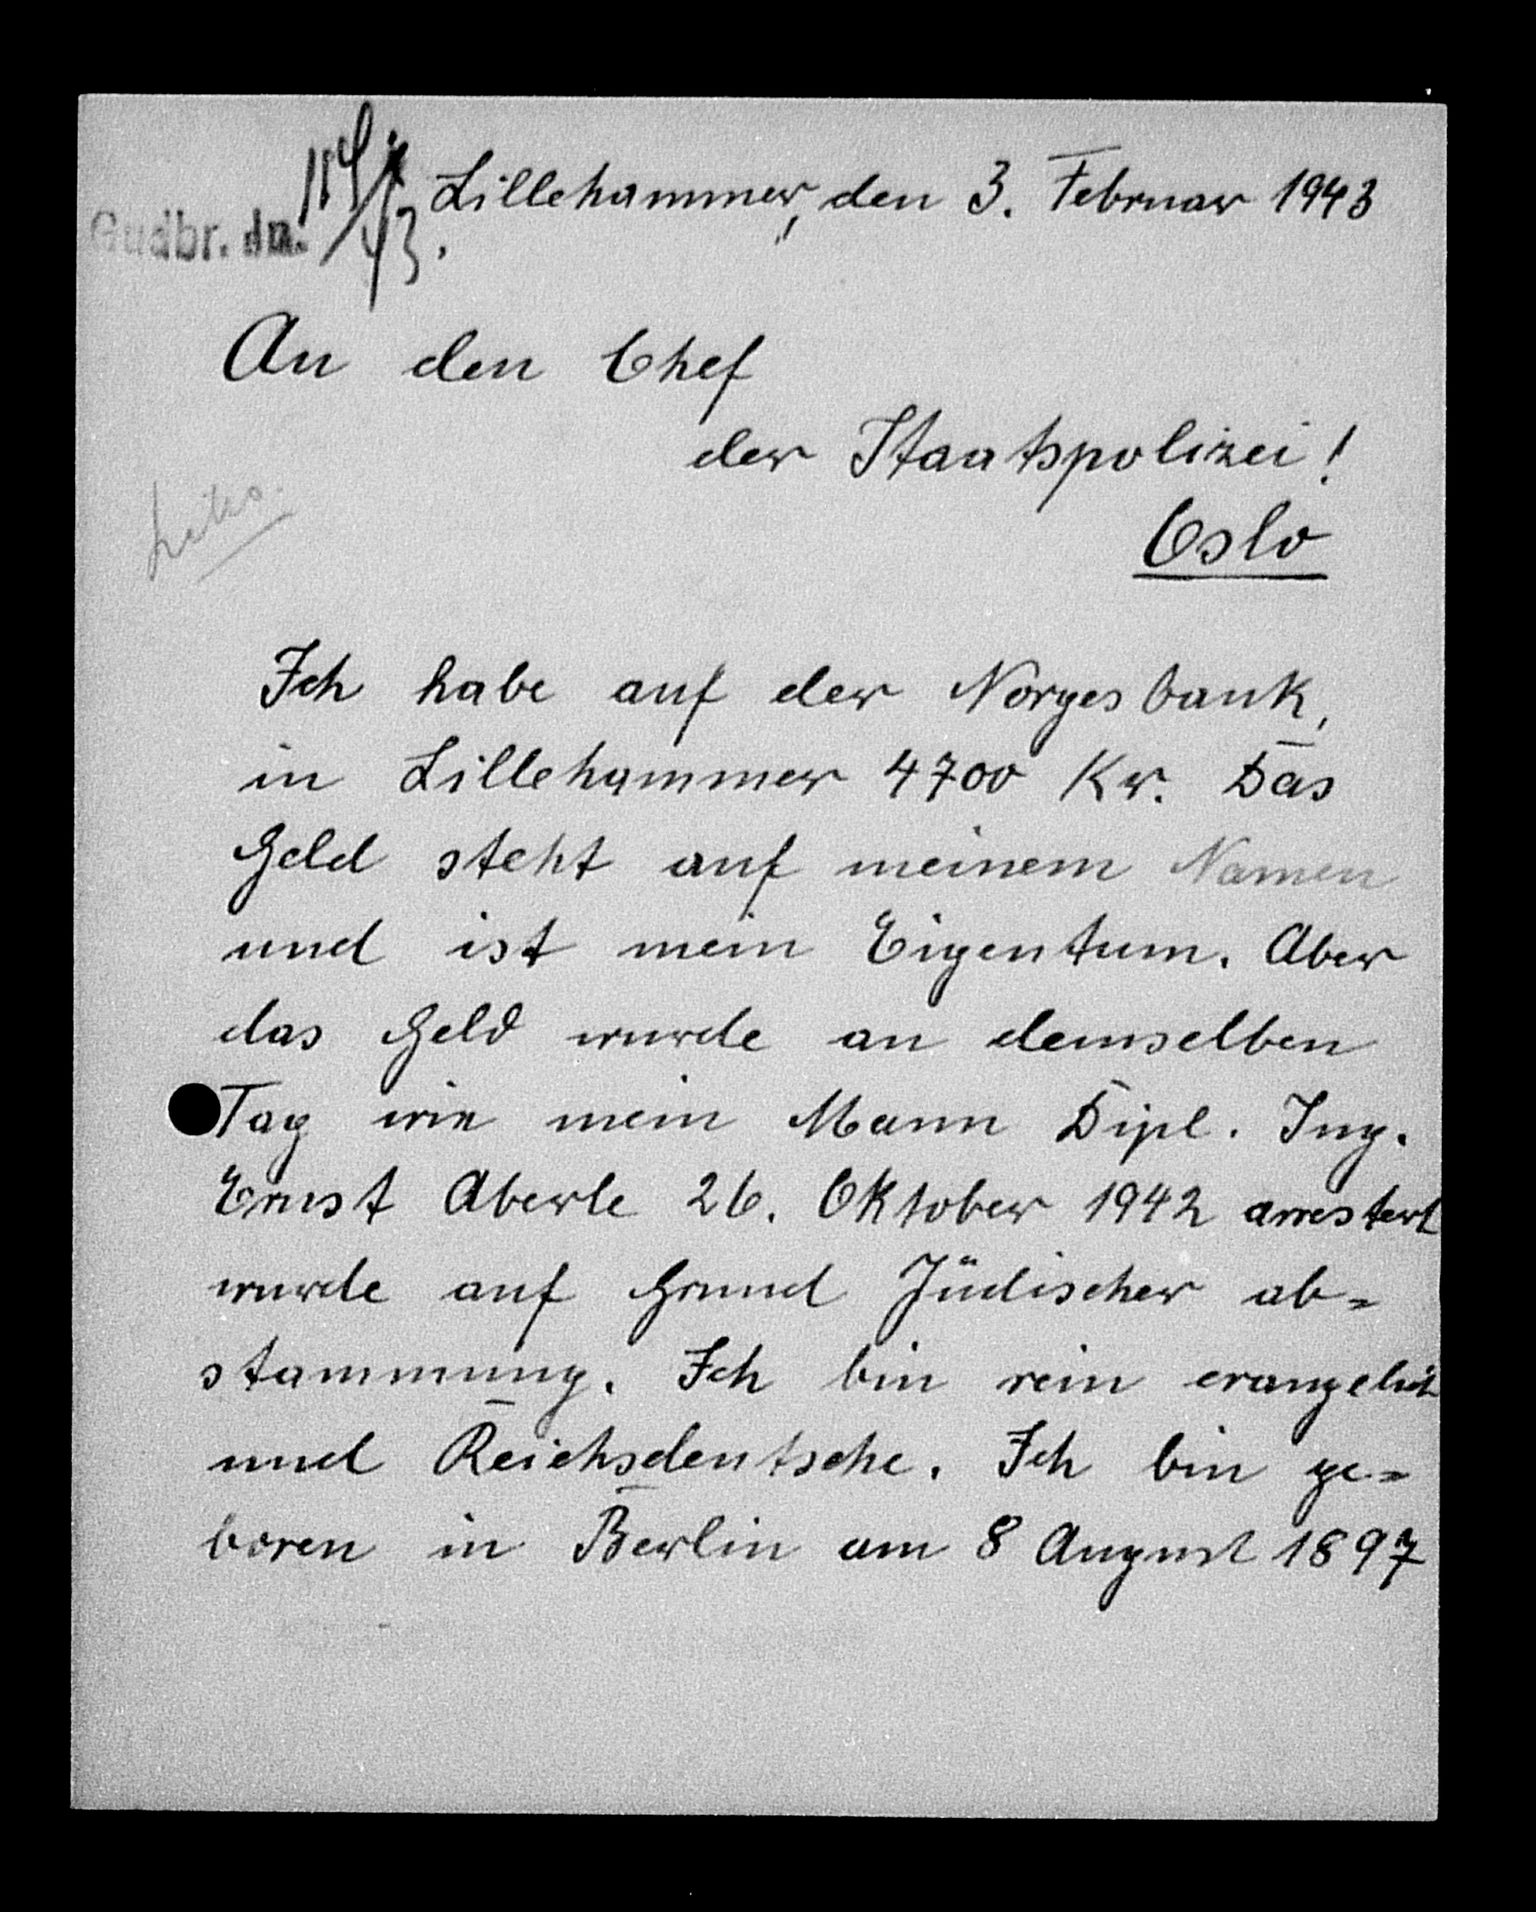 Lillehammer, den 3. Februar 1943
Gudbr. dn.
An den Chef
der Staatspolizei!
Oslo
Ich habe auf der Norges bank,
in Lillehammer 4700 Kr. Das
Geld steht auf meinem Namen
und ist mein Eigentum. Aber
das Geld wurde an demselben
Tag wie mein Mann Dipl. Ing.
Ernst Aberle 26. Oktober 1942 arrestert
wurde auf Grund Jüdischer ab=
stammung. Ich bin rein evangelisch
und Reichsdeutsche. Ich bin ge=
boren in Berlin am 8 August 1897